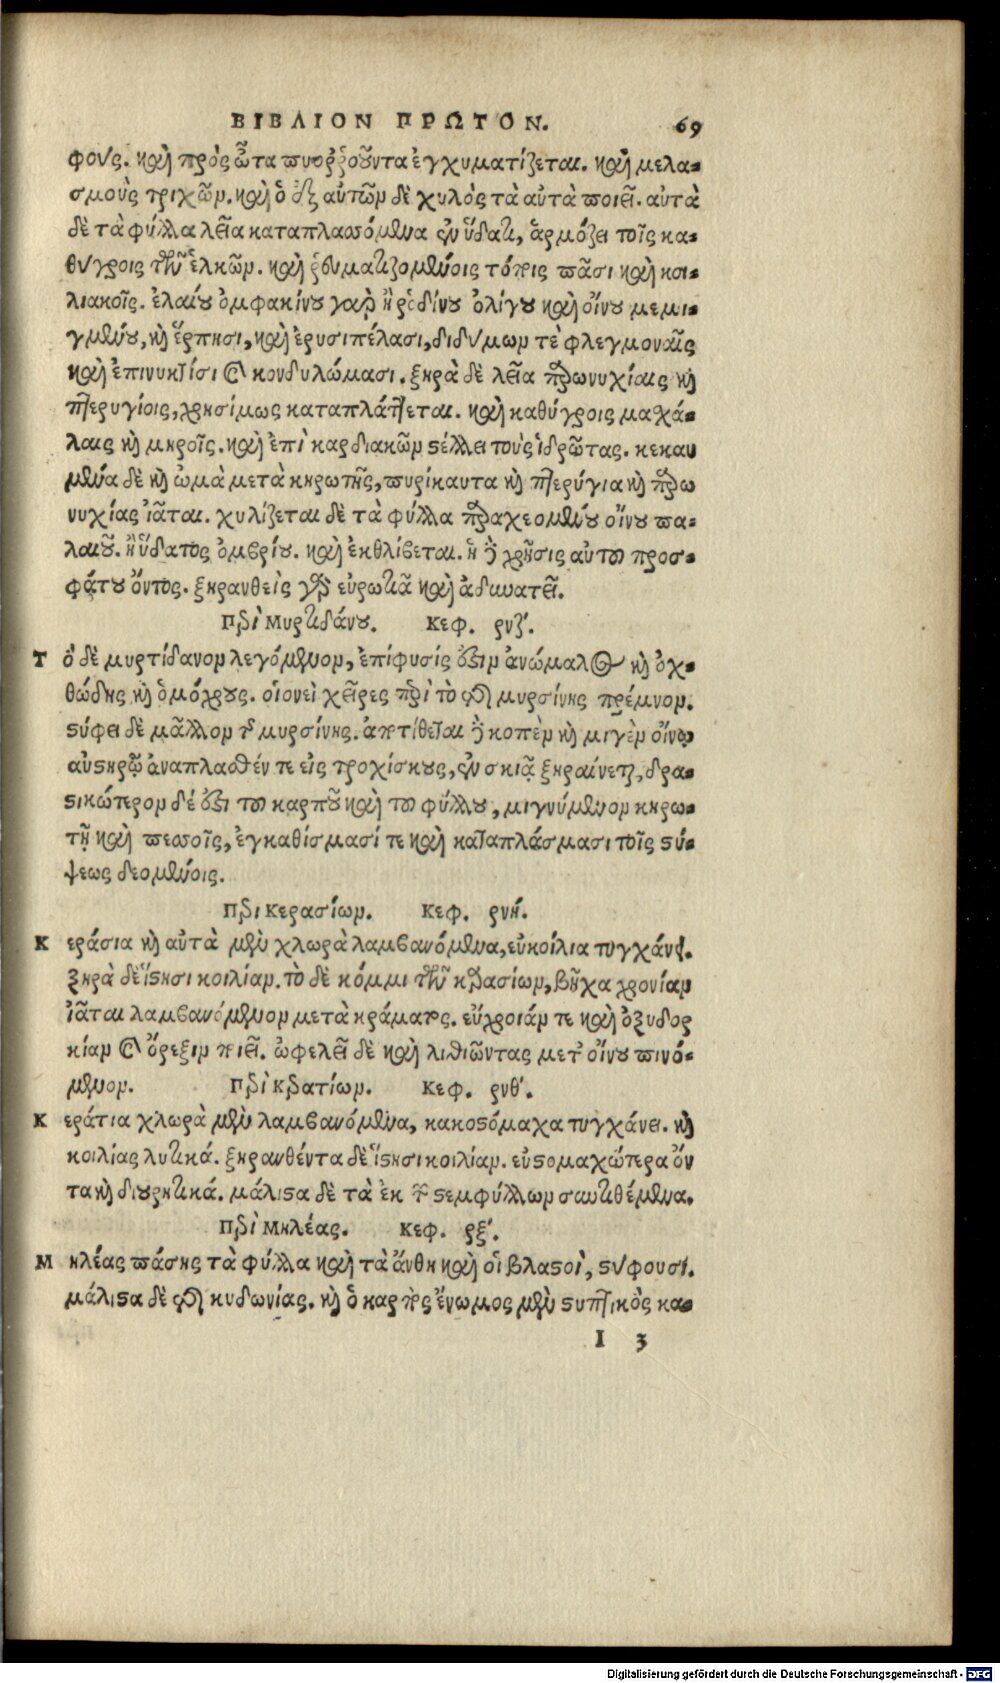 ΒΙΒΛΙΟΝ ΠΡΩΤΟΝ. 69
φους. καὶ πρὸς ὦτα πυοῤῥοοῦντα ἐγχυματίζεται. καὶ μελα-
σμοὺς τριχῶν. καὶ ὁ ἐξ αὐτῶν δὲ χυλὸς τὰ αὐτὰ ποιεῖ. αὐτὰ
δὲ τὰ φύλλα λεῖα καταπλασσόμενα σὺν ὕδατι, ἁρμόζει τοῖς κα-
θύγροις τῶν ἑλκῶν. καὶ ῥευματιζομένοις τόποις πᾶσι καὶ κοι-
λιακοῖς. ἐλαίου ὀμφακίνου γὰρ ἢ ῥοδίνου ὀλίγου καὶ οἴνου μεμι-
γμένου, καὶ ἕρπησι, καὶ ἐρυσιπέλασι, διδύμων τὲ φλεγμοναῖς
καὶ ἐπινυκτίσι καὶ κονδυλώμασι. ξηρὰ δὲ λεῖα παρωνυχίαις καὶ
πτερυγίοις, χρησίμως καταπλάττεται. καὶ καθύγροις μαχά-
λαις καὶ μηροῖς. καὶ ἐπὶ καρδιακῶν στέλλει τοὺς ἱδρῶτας. κεκαυ
μένα δὲ καὶ ὠμὰ μετὰ κηρωτῆς, πυρίκαυτα καὶ πτερύγια καὶ παρω
νυχίας ἰᾶται. χυλίζεται δὲ τὰ φύλλα παραχεομένου οἴνου πα-
λαιοῦ. ἢ ὕδατος ὀμβρίου. καὶ ἐκθλίβεται. ἡ δὲ χρῆσις αὐτοῦ προσ-
φάτου ὄντος. ξηρανθεὶς γὰρ εὐρωτιᾶ καὶ ἀδυνατεῖ.
Περὶ Μυρτιδάνου. Κεφ. ρνζ΄.
Τὸ δὲ μυρτίδανον λεγόμενον, ἐπίφυσίς ἐστιν ἀνώμαλος καὶ ὀχ-
θώδης καὶ ὁμόχρους. οἱονεὶ χεῖρες περὶ τὸ τῆς μυρσίνης πρέμνον.
στύφει δὲ μᾶλλον τῆς μυρσίνης. ἀποτίθεται δὲ κοπὲν καὶ μιγὲν οἴνῳ
αὐστηρῷ ἀναπλασθέν τε εἰς τροχίσκους, ἐν σκιᾷ ξηραίνεται, δρα-
στικώτερον δέ ἐστι τοῦ καρποῦ καὶ τοῦ φύλλου, μιγνύμενον κηρω-
τῇ καὶ πεσσοῖς, ἐγκαθίσμασί τε καὶ καταπλάσμασι τοῖς στύ-
ψεως δεομένοις.
Περὶ Κερασίων. Κεφ. ρνη΄.
Κεράσια καὶ αὐτὰ μὲν χλωρὰ λαμβανόμενα, εὐκοίλια τυγχάνει.
ξηρὰ δὲ ἵστησι κοιλίαν. τὸ δὲ κόμμι τῶν κερασίων, βῆχα χρονίαν
ἰᾶται λαμβανόμενον μετὰ κράματος. εὔχροιάν τε καὶ ὀξυδορ
κίαν καὶ ὄρεξιν ποιεῖ. ὠφελεῖ δὲ καὶ λιθιῶντας μετ᾽ οἴνου πινό-
μενον. Περὶ Κερατίων. Κεφ. ρνθ΄.
Κεράτια χλωρὰ μὲν λαμβανόμενα, κακοστόμαχα τυγχάνει. καὶ
κοιλίας λυτικά. ξηρανθέντα δὲ ἵστησι κοιλίαν. εὐστομαχώτερα ὄν
τα καὶ διουρητικά. μάλιστα δὲ τὰ ἐκ τῶν στεμφύλλων συντιθέμενα.
Περὶ Μηλέας. Κεφ. ρξ΄.
Μηλέας πάσης τὰ φύλλα καὶ τὰ ἄνθη καὶ οἱ βλαστοὶ, στύφουσι.
μάλιστα δὲ τῆς κυδωνίας. καὶ ὁ καρπὸς ἔνωμος μὲν στυπτικὸς κα-
I 3
Digitalisierung gefördert durch die Deutsche Forschungsgemeinschaft - DFG